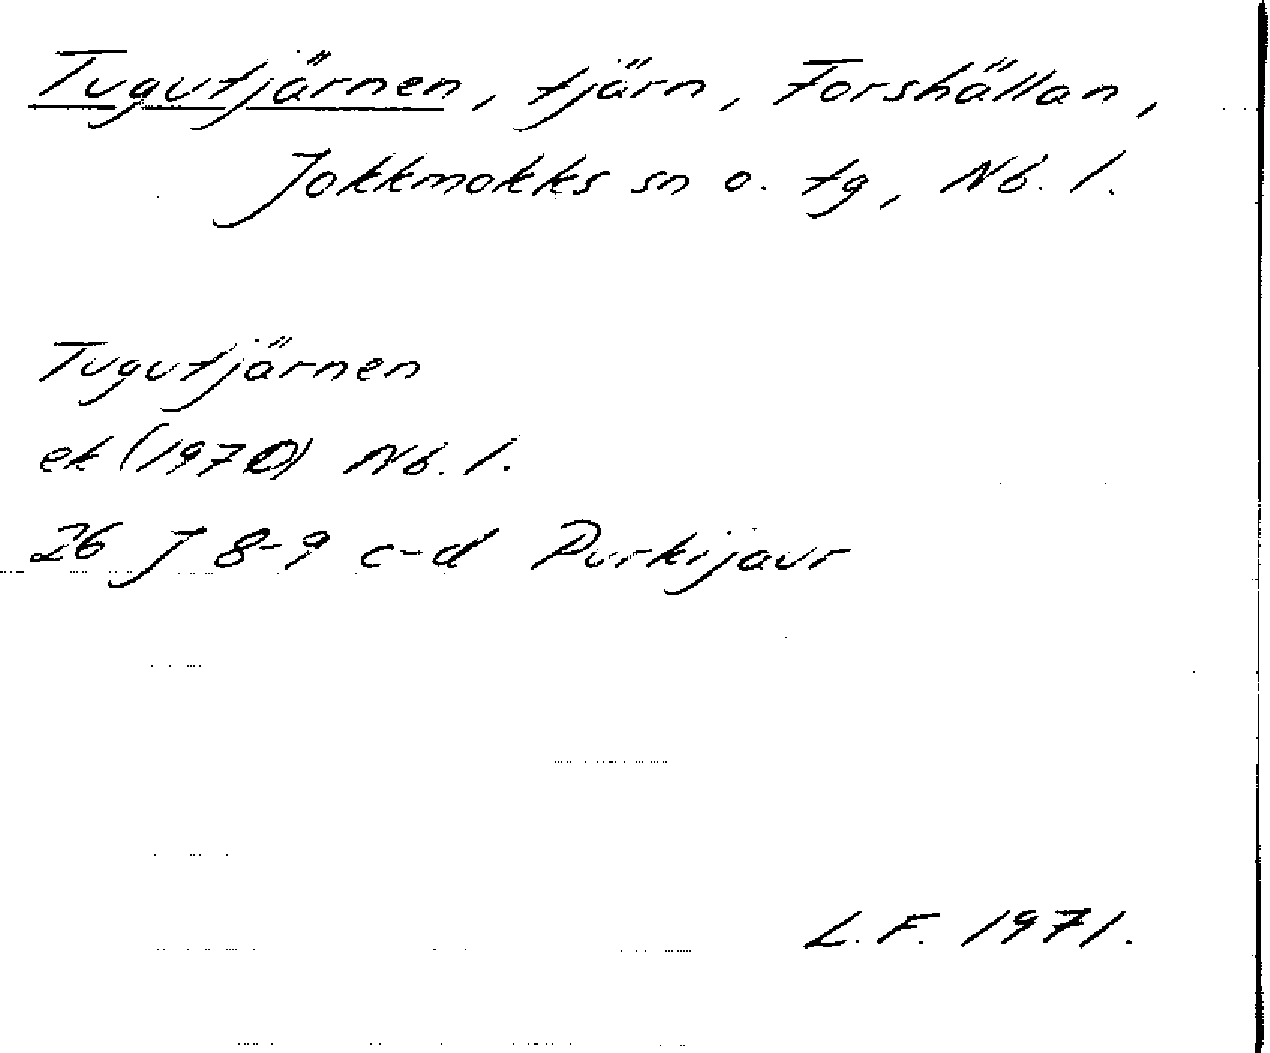 Tugutjärnen, tjärn, Forshällan,
Jokkmokks sn o. tg, Nb. l.
Tugutjärnen
ek (1970) Nb. l.
26 J 8-9 c-d Purkijaur
L.F. 1971.